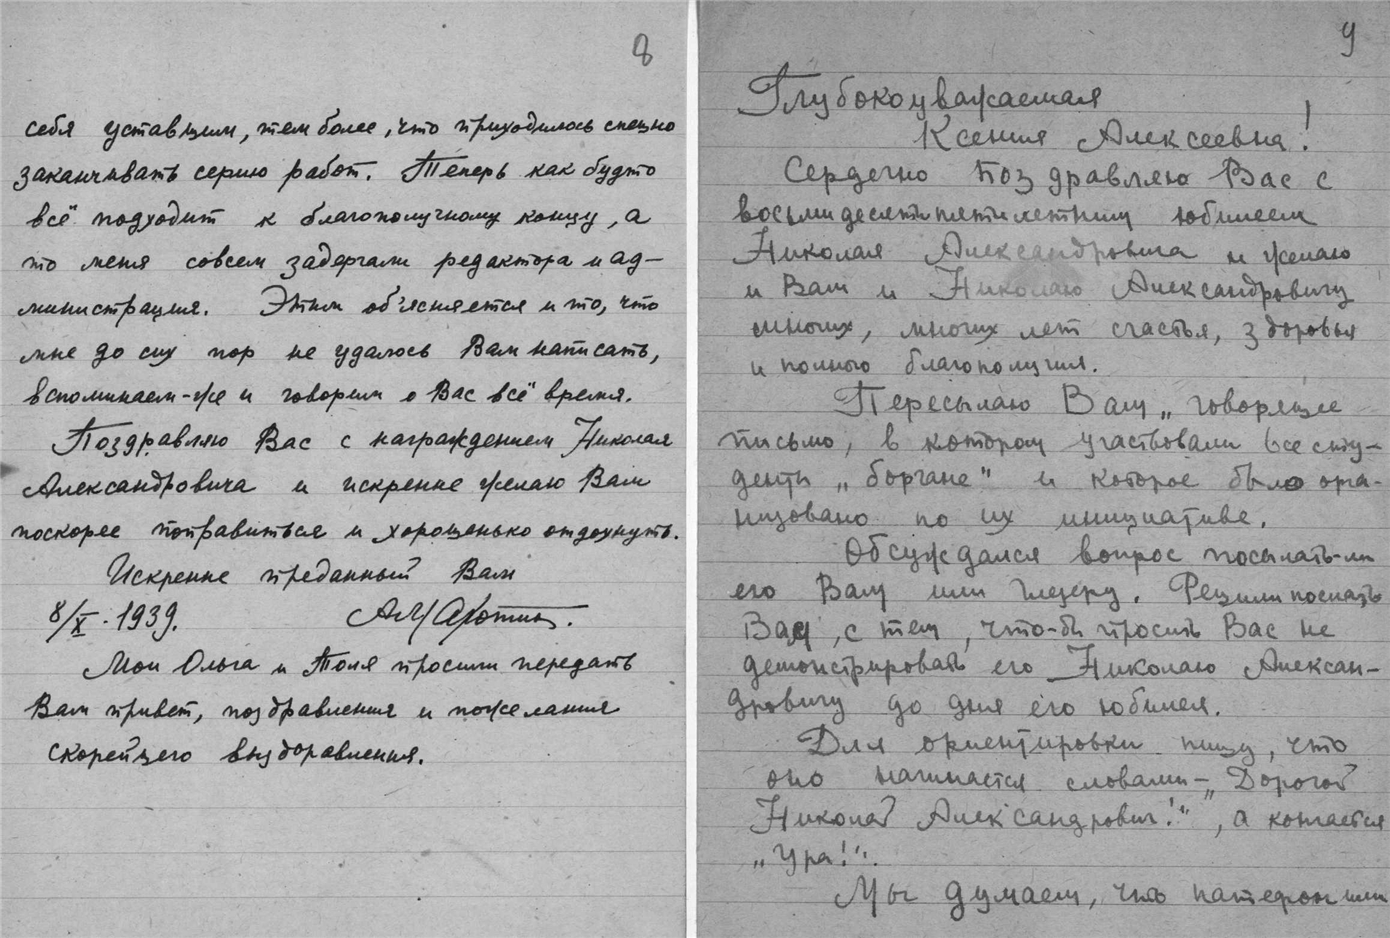 8
себя уставшим, тем более, что приходилось спешно
заканчивать серию работ. Теперь как будто
всё подходит к благополучному концу, а
то меня совсем задергали редактора и ад-
министрация. Этим об'ясняется и то, что
мне до сих пор не удалось Вам написать,
вспоминаем-же и говорим о Вас всё время.
Поздравляю Вас с награждением Николая
Александровича и искренне желаю Вам
поскорее поправиться и хорошенько отдохнуть.
Искренне преданный Вам
8/X. 1939.
Мои Ольга и Толя просили передать
Вам привет, поздравления и пожелания
скорейшего выздоравления.
9
Глубокоуважаемая
Ксения Алексеевна!
Сердечно поздравляю Вас с
восьмидесятипятилетним юбилеем
Николая Александровича и желаю
и Вам и Николаю Александровичу
многих, многих лет счастья, здоровья
и полного благополучия.
Пересылаю Вам „говорящее
письмо, в котором участвовали все сту-
денты „боргане" и которое было орга-
низовано по их инициативе.
Обсуждался вопрос посылать-ли
его Вам или Глезеру. Решили послать
Вам, с тем, что-бы просить Вас не
демонстрировать его Николаю Алексан-
дровичу до дня его юбилея.
Для ориентировки пишу, что
оно начинается словами – „Дорогой
Николай Александрович!", а кончается
„Ура!".
Мы думаем, что патефон или